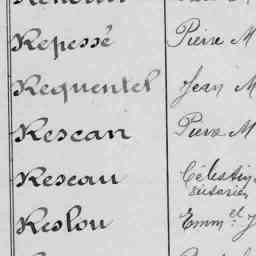 Repessé Pierre M
Requentel Jean M
Rescan Pierre M
Reseau Célestin
Reslou Emm.el J